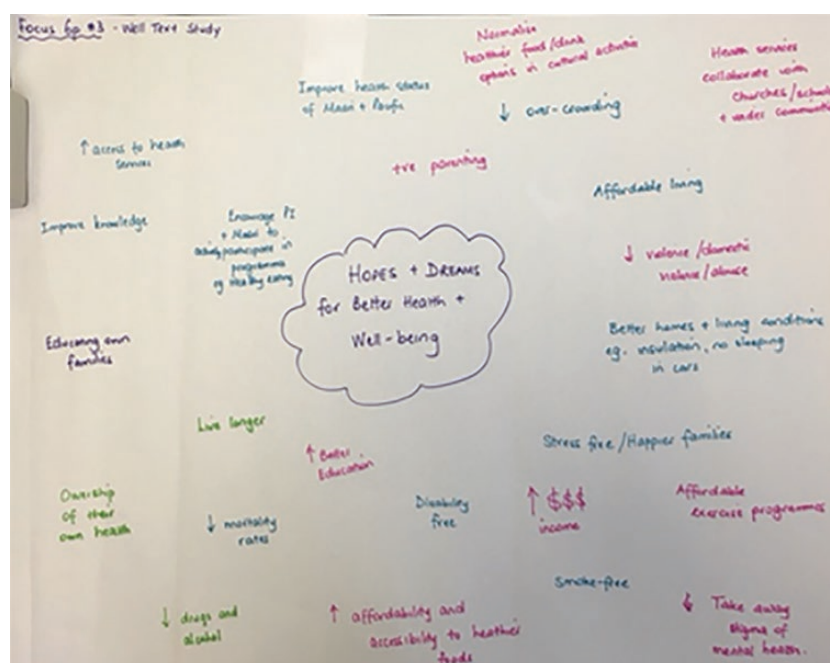 Focus Gp #3 - Well Text Study
Normalise
healthier food/drink
options in cultural activities
Health services
collaborate with
churches/schools
+ wider communit
Improve health status
of Maori + Pacific
↓ over-crowding
↑ access to health
services
+ve parenting
Affordable living
Improve knowledge
Encourage PI
+ Maori to
actively participate in
programmes
eg Healthy eating
HOPES + DREAMS
for Better Health +
Well-being
↓ violence/domestic
violence/abuse
Better homes + living conditions
eg. insulation, no sleeping
in cars
Educating own
families
Live longer
↑ Better
Education
Stress free/Happier families
Owership
of their
own health
↓ mortality
rates
Disability
free
↑ $$$
income
Affordable
exercise programmes
Smoke-free
↓ drugs and
alcohol
↑ affordability and
accessibility to healthier
foods
↓ Take away
stigma of
mental health.